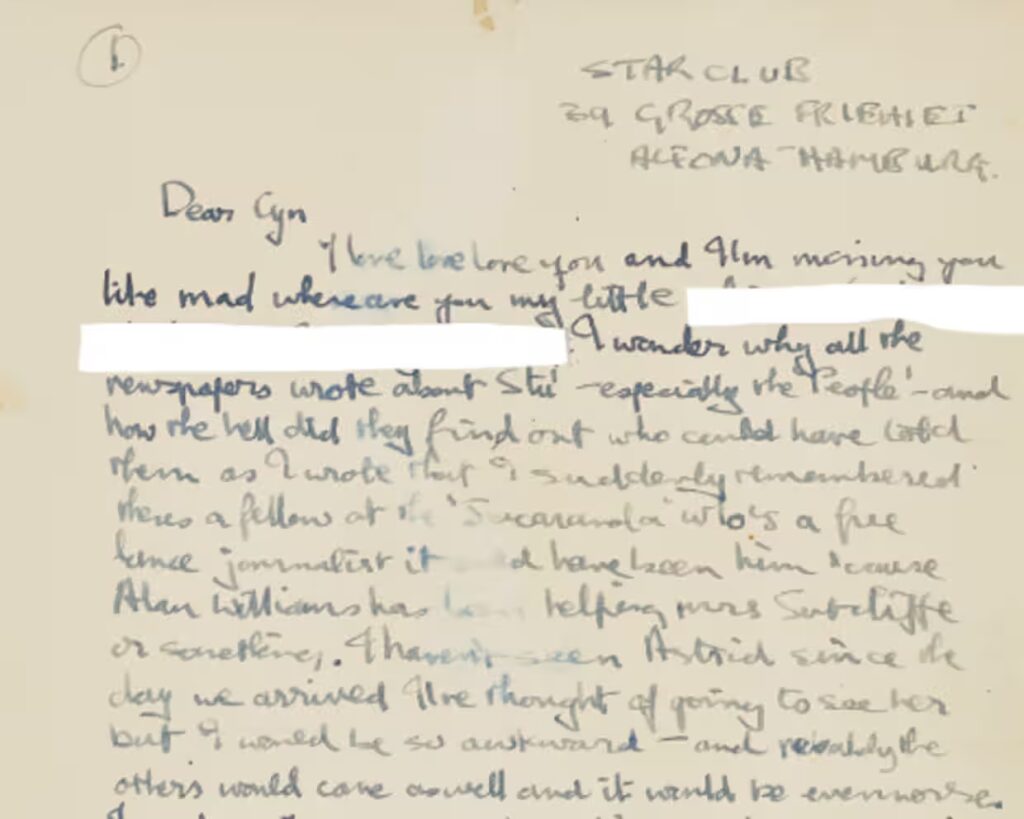 1.
STAR CLUB
39 GROSSE FRIEHIET
ALTONA - HAMBURG.
Dear Cyn
I love love love you and I'm missing you
like mad where are you my little
I wonder why all the
newspapers wrote about Stu' - especially the 'People' - and
how the hell did they find out who could have told
them as I wrote that I suddenly remembered
theres a fellow at the 'Jacaranda' who's a free
lance journalist it have been him 'cause
Alan Williams has been helping mrs Sutcliffe
or something. I haven't seen Astrid since the
day we arrived I've thought of going to see her
but I would be so awkward - and probably the
others would come as well and it would be even worse.